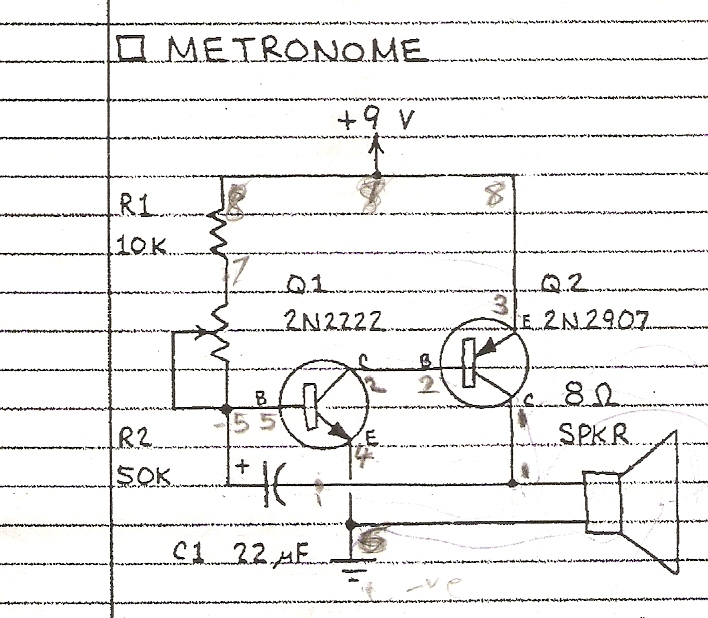 METRONOME
+9 V
8 8 8
R1
10K
7
Q1 Q2
2N2222 3 E 2N2907
C B
2 2
B C 8Ω
-5 5 E 1 SPKR
R2 4
50K + 1 1
C1 22 μF 6
-ve